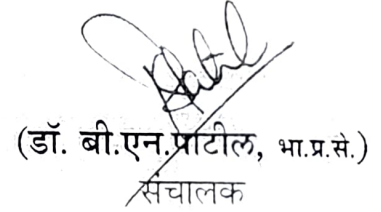 (डॉ. बी.एन.पाटील, भा.प्र.से.)
संचालक